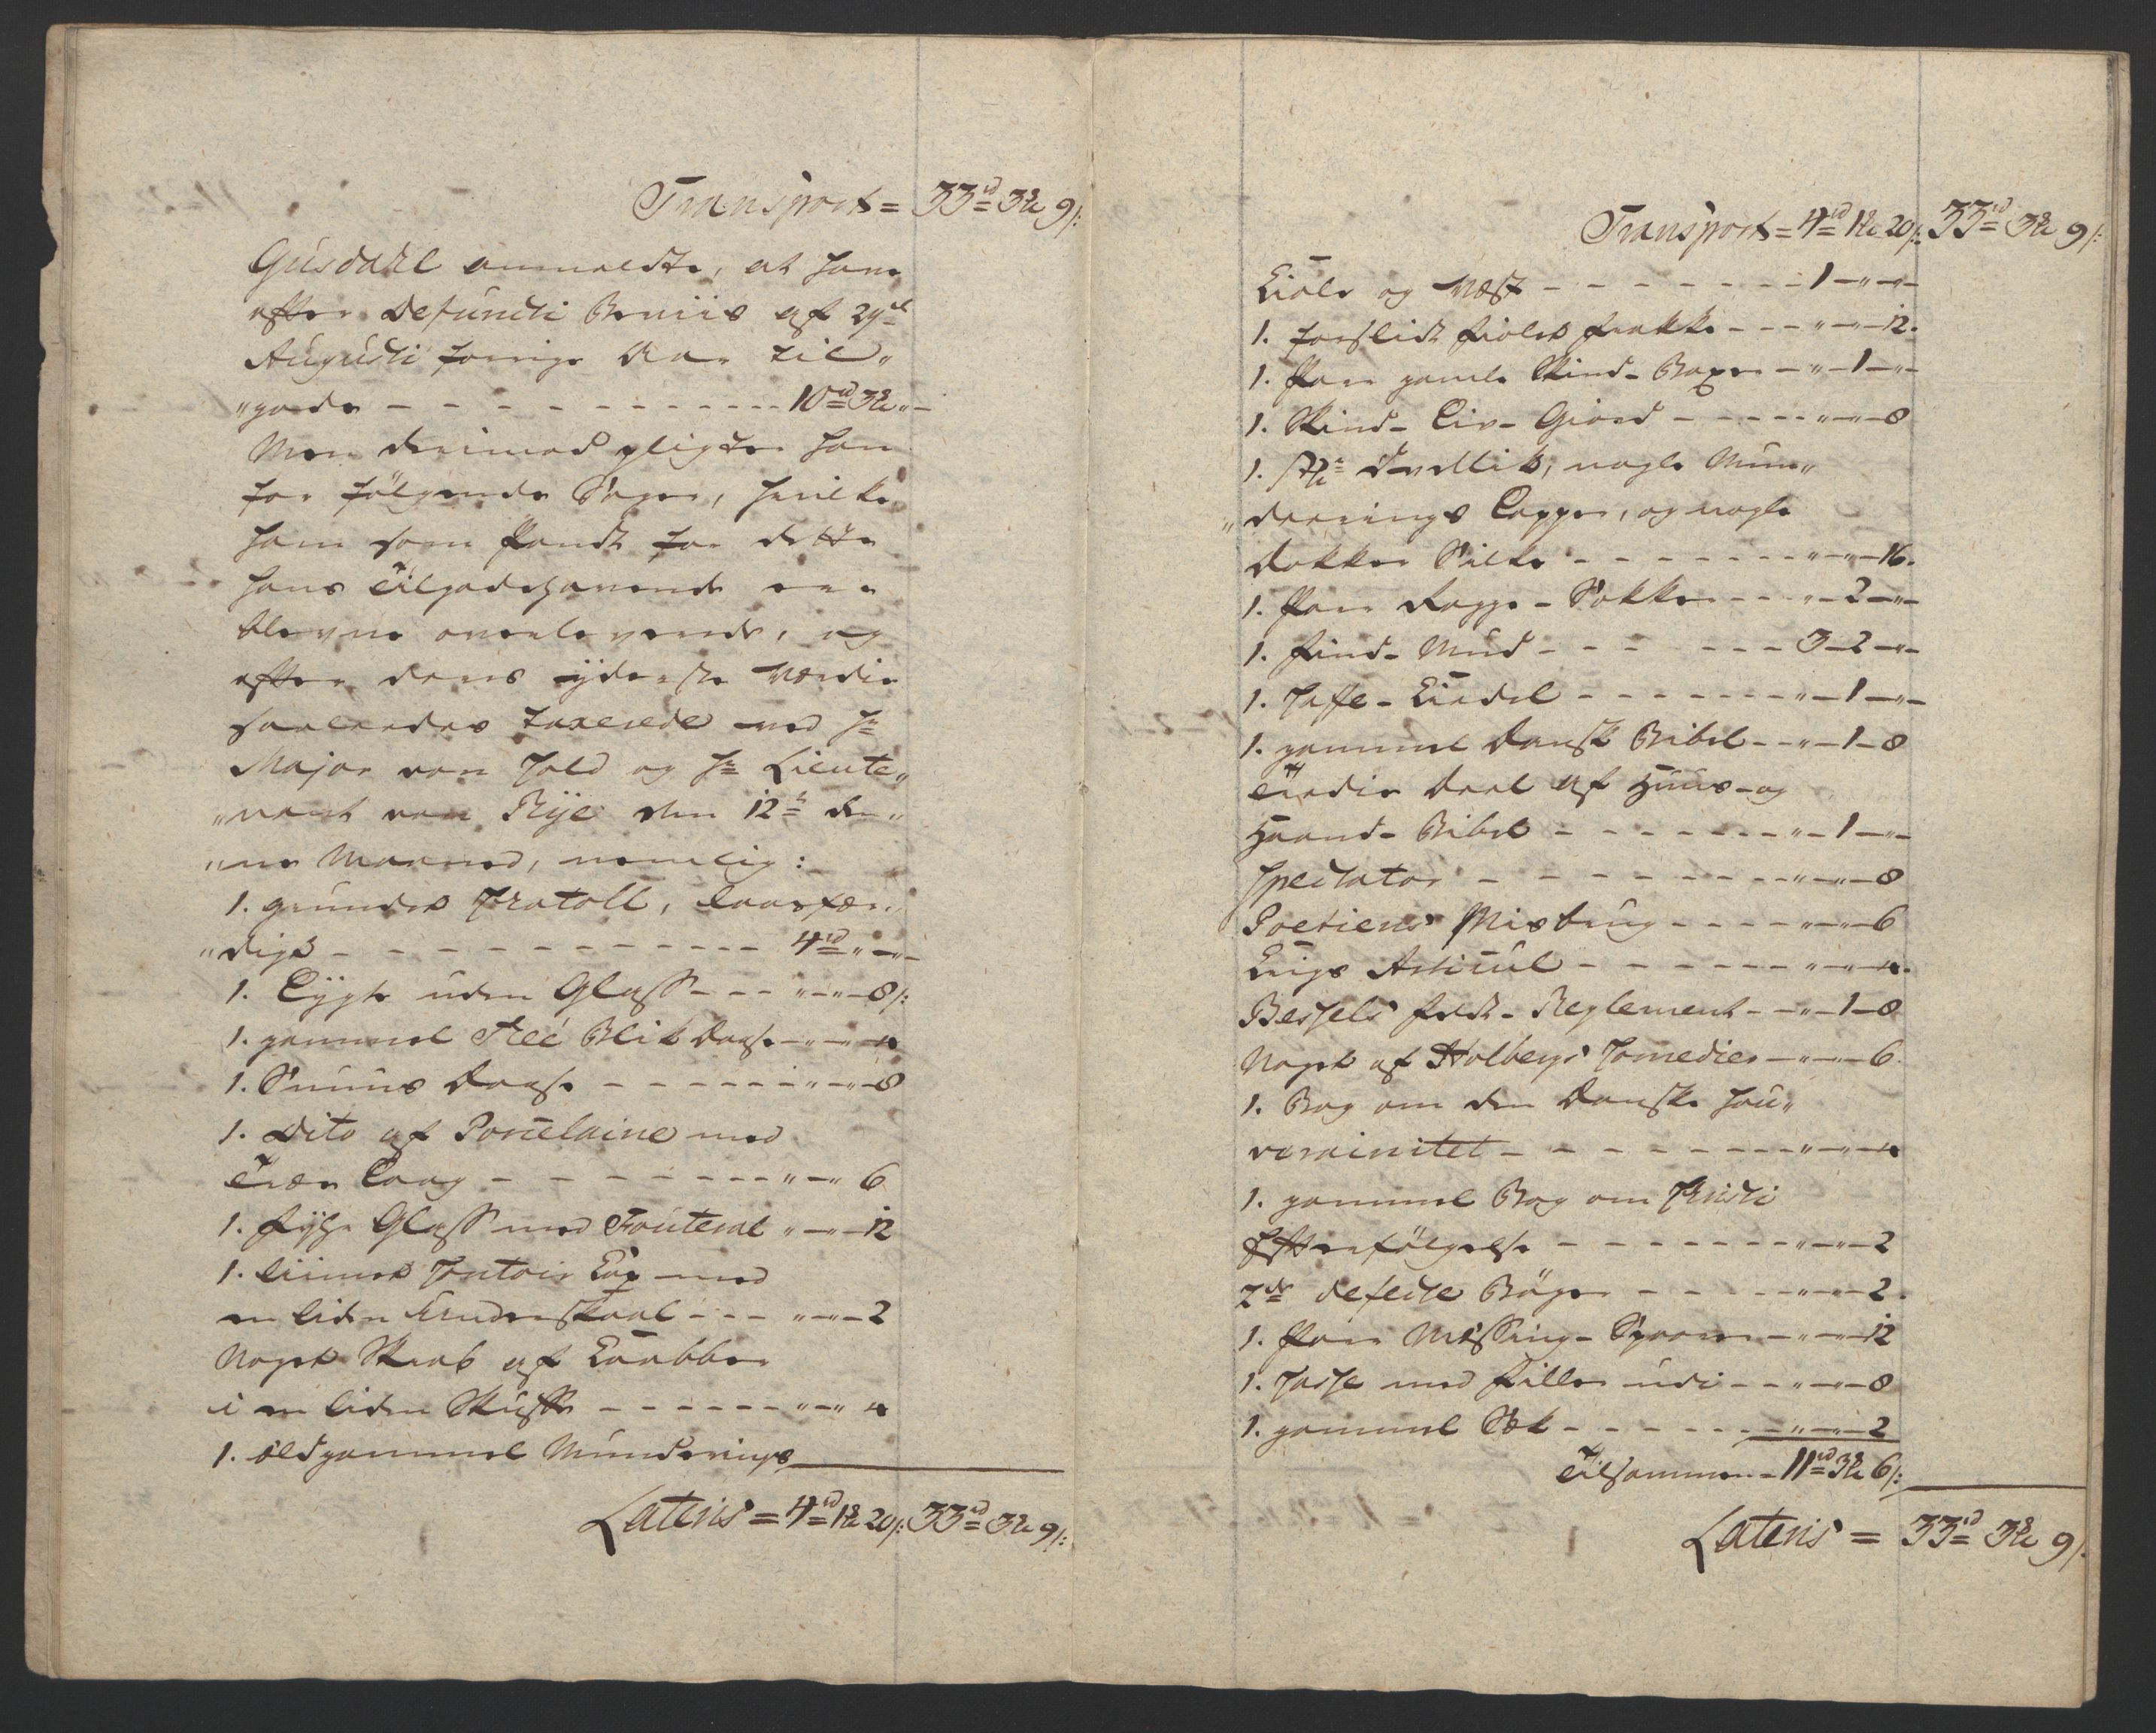 Transport = 33rd 3 9/:
Gusdahl anmeldte, at have
efter defuncti Beviis af 29de
Augusti forrige Aar til„
„gode - - - 10rd 3 „-
Men derimod pligter han
for følgende Sager, hvilke
ham som Pandt for dette
hans Tilgodehavende ere
blevne overleverede, og
efter deres yderste Værdie
saaledes taxerede ved Hr
Major von Told og Hr Lieute„
„nant von Rÿe den 12te den„
„ne Maaned, nemlig:
1. grundet Chatoll, laasfær„
„digt - - - 4rd „-„-
1. Lygte uden Glass - - „-„-8/:
1. gammel Theé Blik Daase -„-„-4
1. Snuus Daase - - - „-„-8
1. dito af Porcelaine med
Træe Laag - - - „-„-6
1. Rysse Glass med Fouteral „-„-12
1. liimet Contoir Kop med
en liden Kruderskaal - - „-„-2
Noget Skrab af Knabber
i en liden Skuffe - - - „-„-4
1. ældgammel Munderings
Lateris = 4rd 1 20/: 33rd 3 9/:
Transport = 4rd 1 20/: 33rd 3 9/:
Kiole og Vest - - - 1-„-„-
1. forslidt fiolet frakke - - „-„-12.
1. Par gamle Skind-Boxer -„-1-„-
1. Skind-Liv-Giord - - - „-„-8
1. St: Dvellik, nogle Mun„
„derings Lapper, og nogle
Dokker Silke - - - „-„-16.
1. Par Ragge-Sokker - - „-2-„-
1. Find-Mud - - - 3-2-„-
1. Caffe-Kiedel - - - „-1-„-
1. gammel Dansk Bibel - -„-1-8
Tredie Deel af Huus- og
Haand-Bibel - - - „-1-„-
Spectator - - - „-„-8
Poetiens Misbrug - - - „-„-6
Krigs Articul - - - „-„-4.
Bessels feldt-Reglement - -„-1-8
Noget af Holbergs Comedier -„-„-6
1. Bog om den Danske Sou„
verainitet - - - „-„-4
1. gammel Bog om Christi
Efterfølgelse - - - „-„-2
2de defecte Bøger - - - „-„-2.
1. Par Messing-Sporer -„-„-12
1. Casse med Filler udi - -„-„-8
1. gammel Sek - - - „-„-2
Tilsammen - 11rd 3 6/:
Lateris = 33rd 3 9/: